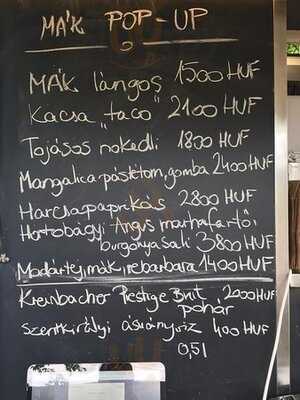 MÁK POP-UP
MÁK lángos 1500 HUF
Kacsa "taco" 2100 HUF
Tojásos nokedli 1800 HUF
Mangalica pástétom, gomba 2400 HUF
Harcsapaprikás 2800 HUF
Hortobágyi Angus marhafartő,
burgonyasali 3800 HUF
Madártej, mák, rebarbara 1400 HUF
Kreinbacher Prestige Brut 2000 HUF
pohár
szentkirályi ásványvíz 400 HUF
0,5l